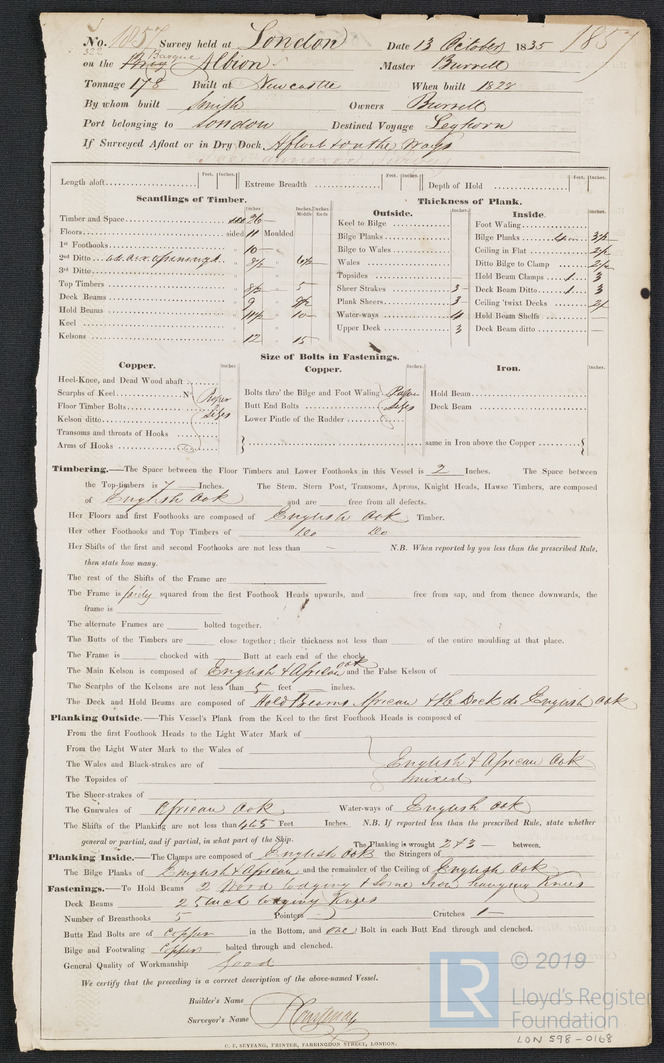 No. 1857 Survey held at London Date 13 October 1835 1857
on the Barque Albion Master Burrell
Tonnage 178 Built at Newcastle When built 1828
By whom built Smith Owners Burrell
Port belonging to London Destined Voyage Leghorn
If Surveyed Afloat or in Dry Dock. Afloat & on the Ways
Feet. Inches. Feet. Inches. Feet. Inches.
Length aloft Extreme Breadth Depth of Hold
Scantlings of Timber. Thickness of Plank.
Inches Inches Middle Inches Ends Outside. Inches Inside. Inches
Timber and Space 26 Keel to Bilge Foot Waling
Floors sided 11 Moulded Bilge Planks Bilge Planks 3½
1st Foothooks 10 Bilge to Wales Ceiling in Flat 2½
2nd Ditto 8½ Wales Ditto Bilge to Clamp 2½
3rd Ditto Topsides Hold Beam Clamps 1 3
Top Timbers 8½ 5 Sheer Strakes 3 Deck Beam Ditto 1 3
Deck Beams 9 Plank Sheers 3 Ceiling 'twixt Decks
Hold Beams 10 Water-ways 4 Hold Beam Shelfs
Keel Upper Deck 3 Deck Beam ditto —
Kelsons 12 15
Size of Bolts in Fastenings.
Copper. Inches Copper. Inches. Iron. Inches.
Heel-Knee, and Dead Wood abaft
Scarphs of Keel N° Proper Bolts thro' the Bilge and Foot Waling Proper Hold Beam
Floor Timber Bolts Sizes Butt End Bolts Sizes Deck Beam
Kelson ditto Lower Pintle of the Rudder
Transoms and throats of Hooks
Arms of Hooks same in Iron above the Copper
Timbering.—The Space between the Floor Timbers and Lower Foothooks in this Vessel is 2 Inches. The Space between
the Top-timbers is 7 Inches. The Stem, Stern Post, Transoms, Aprons, Knight Heads, Hawse Timbers, are composed
of English Oak and are free from all defects.
Her Floors and first Foothooks are composed of English Oak Timber.
Her other Foothooks and Top Timbers of Do Do
Her Shifts of the first and second Foothooks are not less than N.B. When reported by you less than the prescribed Rule,
then state how many.
The rest of the Shifts of the Frame are
The Frame is fairly squared from the first Foothook Heads upwards, and free from sap, and from thence downwards, the
frame is
The alternate Frames are bolted together.
The Butts of the Timbers are close together; their thickness not less than of the entire moulding at that place.
The Frame is chocked with Butt at each end of the chock.
The Main Kelson is composed of English & African Oak and the False Kelson of
The Scarphs of the Kelsons are not less than 5 feet inches.
The Deck and Hold Beams are composed of Hold Beams African & the Deck do English Oak
Planking Outside.—This Vessel's Plank from the Keel to the first Foothook Heads is composed of
From the first Foothook Heads to the Light Water Mark of
From the Light Water Mark to the Wales of
The Wales and Black-strakes are of English & African Oak
The Topsides of mixed
The Sheer-strakes of
The Gunwales of African Oak Water-ways of English Oak
The Shifts of the Planking are not less than 4 to 5 Feet Inches. N.B. If reported less than the prescribed Rule, state whether
general or partial, and if partial, in what part of the Ship. The Planking is wrought 2 & 3 between.
Planking Inside.—The Clamps are composed of English Oak the Stringers of
The Bilge Planks of English & African and the remainder of the Ceiling of English Oak
Fastenings.—To Hold Beams 2 Wood lodging & some Iron hanging Knees
Deck Beams 2 lodging Knees
Number of Breasthooks 5 Pointers Crutches 1
Butts End Bolts are of Copper in the Bottom, and one Bolt in each Butt End through and clenched.
Bilge and Footwaling Copper bolted through and clenched.
General Quality of Workmanship Good
We certify that the preceding is a correct description of the above-named Vessel.
Builder's Name
Surveyor's Name
C. F. SEYFANG, PRINTER, FARRINGDON STREET, LONDON.
LR © 2019
Lloyd's Register
Foundation
LON 598-0168